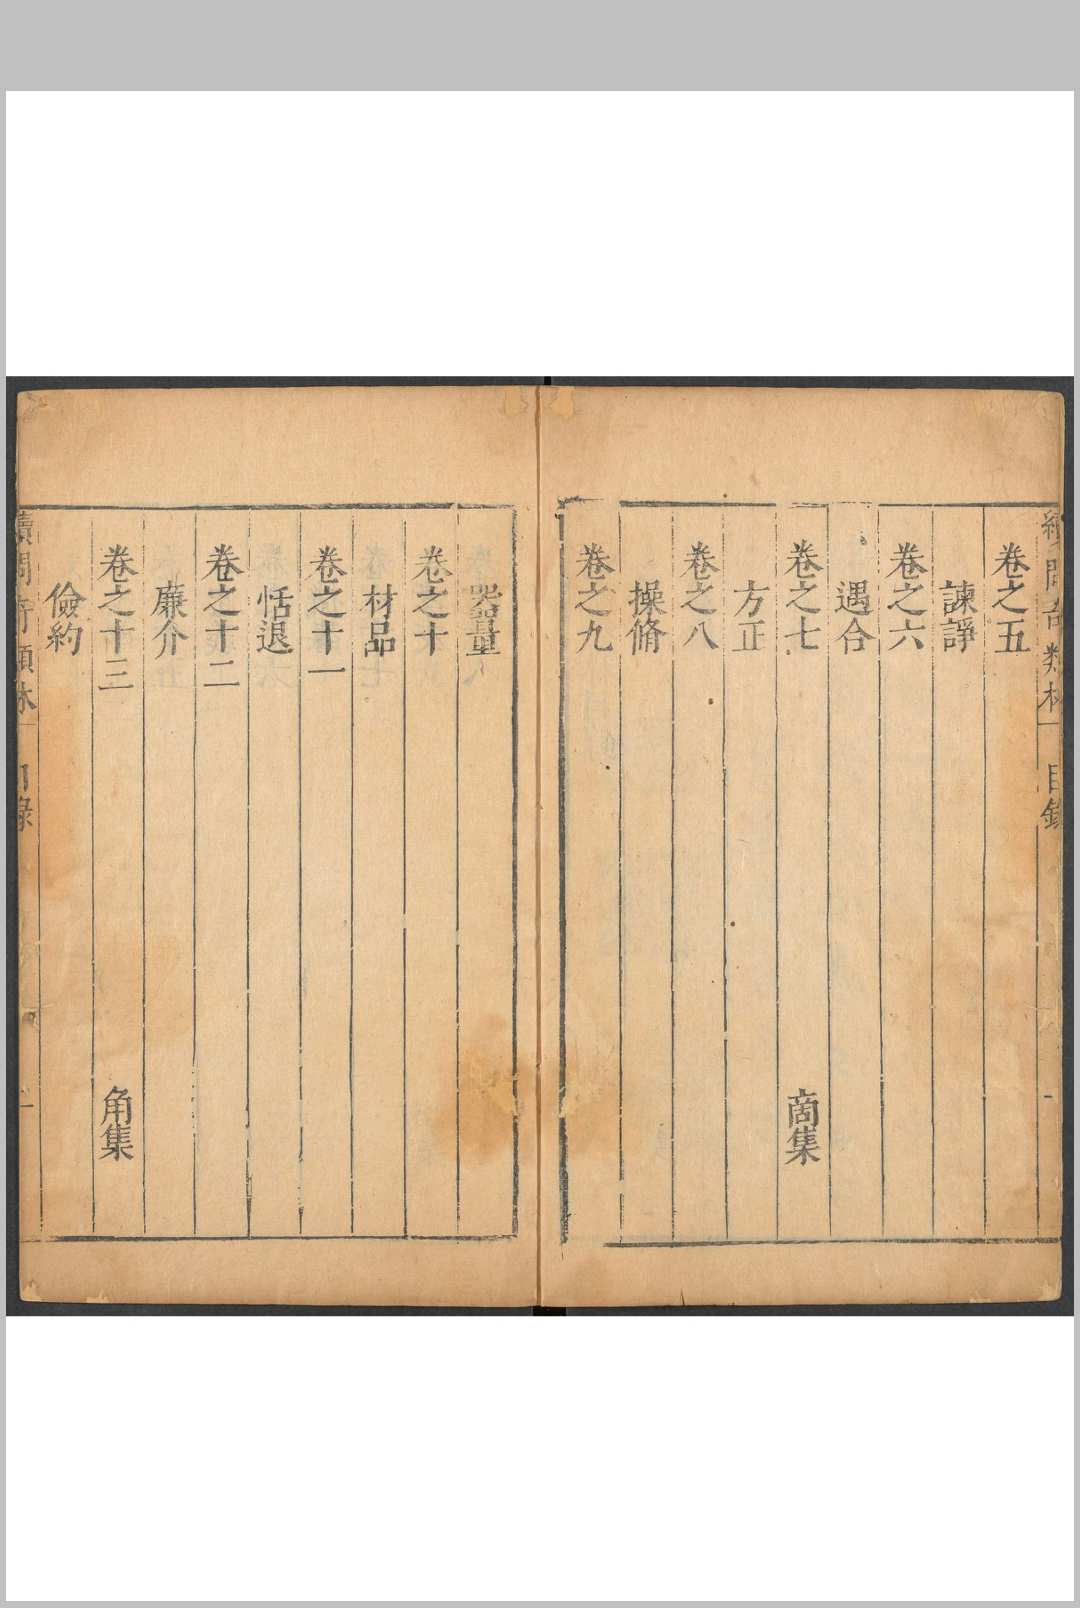 卷之五
諫諍
卷之六
遇合
卷之七 商集
方正
卷之八
操脩
卷之九
器量
卷之十
材品
卷之十一
恬退
卷之十二
廉介
卷之十三 角集
儉約
目錄